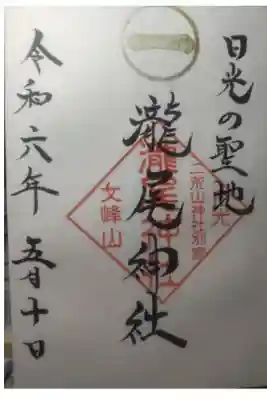 日光の聖地
瀧尾神社
令和六年 五月十日
二荒山神社別宮
瀧尾神社
女峰山